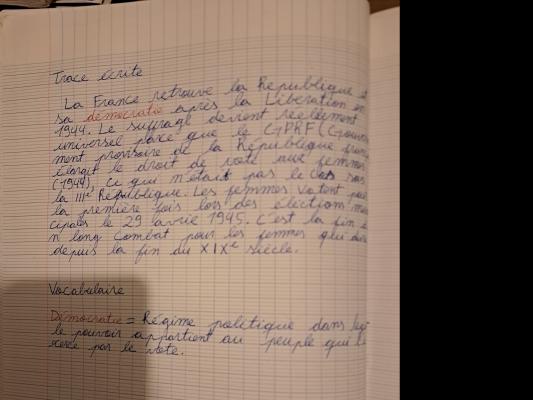 Trace écrite
La France retrouve la République et
sa démocratie après la Libération en
1944. Le suffrage devient réellement
universel parce que le GPRF (Gouverne
ment provisoire de la République fran
élargit le droit de vote aux femmes
(1944), ce qui n'était pas le cas sous
la IIIe République. Les femmes votent pour
la première fois lors des élection mun
cipales le 29 avrie 1945. C'est la fin d
n long combat pour les femmes qui dure
depuis la fin du XIXe siècle.
Vocabulaire
Démocratie = Régime politique dans leq
le pouvoir appartient au peuple qui l'e
xerce par le vote.